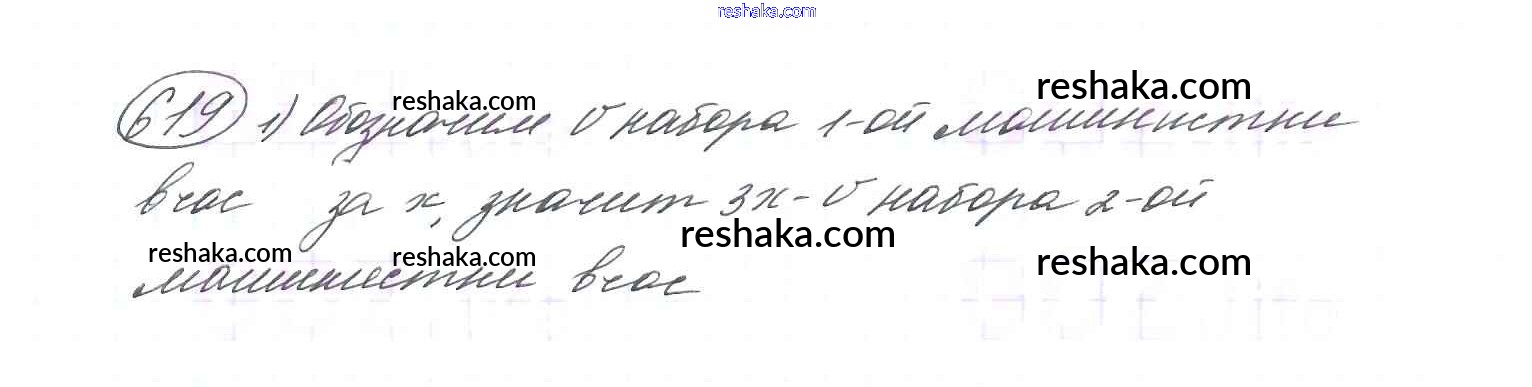 reshaka.com
reshaka.com
reshaka.com
619 1) Обозначим V набора 1-ой машинистки
в час за x, значит 3x - V набора 2-ой
reshaka.com
reshaka.com
reshaka.com
reshaka.com
машинистки в час